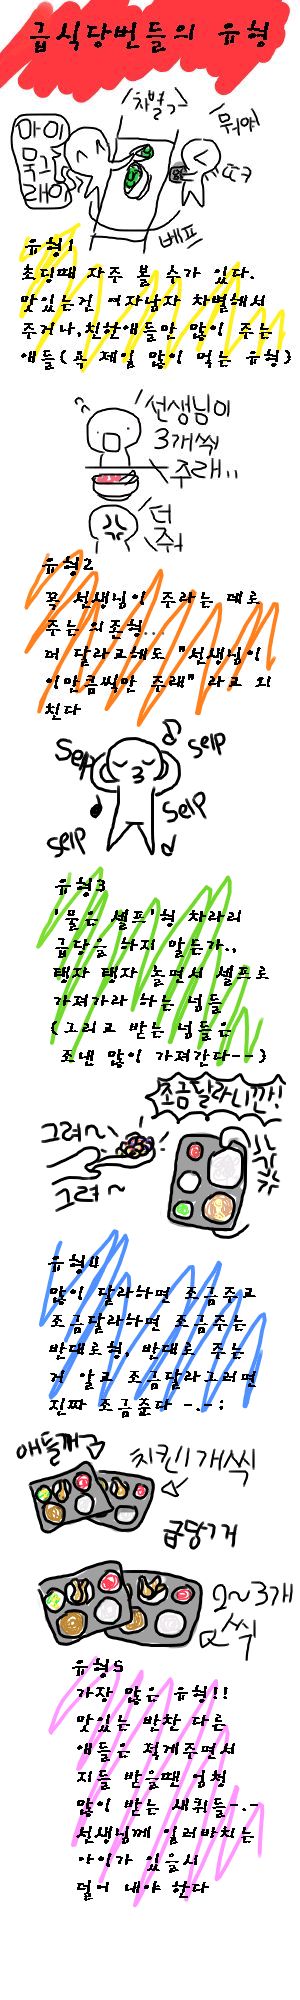 급식당번들의 유형
차별?
뭐야!
마이
묵그
래이
ㄸㅋ
베프
유형1
초딩때 자주 볼 수가 있다.
맛있는건 여자남자 차별해서
주거나,친한애들만 많이 주는
애들(욕 제일 많이 먹는 유형)
선생님이
3개씩
주래..
더
줘
유형2
꼭 선생님이 주라는 데로
주는 의존형...
더 달라고해도 "선생님이
이만큼씩만 주래" 라고 외
친다
Selp
selp
selp
selp
유형3
'물은 셀프'형 차라리
급당을 하지 말든가.,
탱자 탱자 놀면서 셀프로
가져가라 하는 넘들
(그리고 받는 넘들은
조낸 많이 가져간다--)
조금달라니깐!
그려~
그려~
유형4
많이 달라하면 조금주고
조금달라하면 조금주는
반대로형, 반대로 주는
거 알고 조금달라그러면
진짜 조금준다 -.-;
애들꺼
치킨1개씩
급당거
2~3개
씩
유형5
가장 많은 유형!!
맛있는 반찬 다른
애들은 적게주면서
지들 받을땐 엄청
많이 받는 새퀴들-.-
선생님께 일러바치는
아이가 있을시
덜어 내야 한다